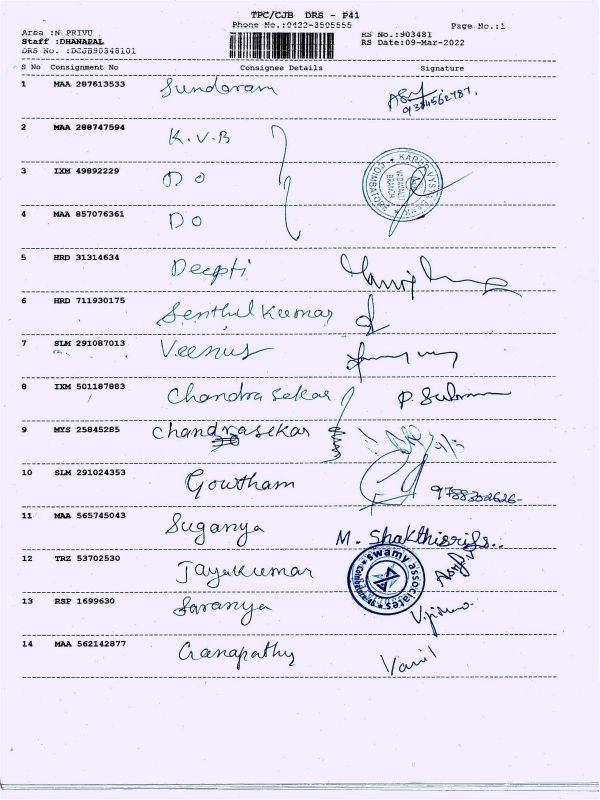 TPC/CJB DRS - P41
Phone No.:0422-3505555
Page No.:1
Area :N PRIVU
Staff :DHANAPAL
DRS No. :DCJB90348101
RS No.:903481
RS Date:09-Mar-2022
S No Consignment No Consignee Details Signature
1 MAA 287613533 Sundaram
9384562787.
2 MAA 288747594 K.V.B
3 IXM 49892229 DO
KARUR VYSYA BANK
BRANCH
COIMBATORE
4 MAA 857076361 DO
5 HRD 31314634 Deepti
6 HRD 711930175 Senthil Kumar
7 SLM 291087013 Veenus
8 IXM 501187883 Chandra sekar
9 MYS 25845285 Chandrasekar
10 SLM 291024353 Gowtham
11 MAA 565745043 Suganya M.
12 TRZ 53702530 Jayakumar
swamy associates
13 RSP 1699630 Saranya
14 MAA 562142877 Ganapathy